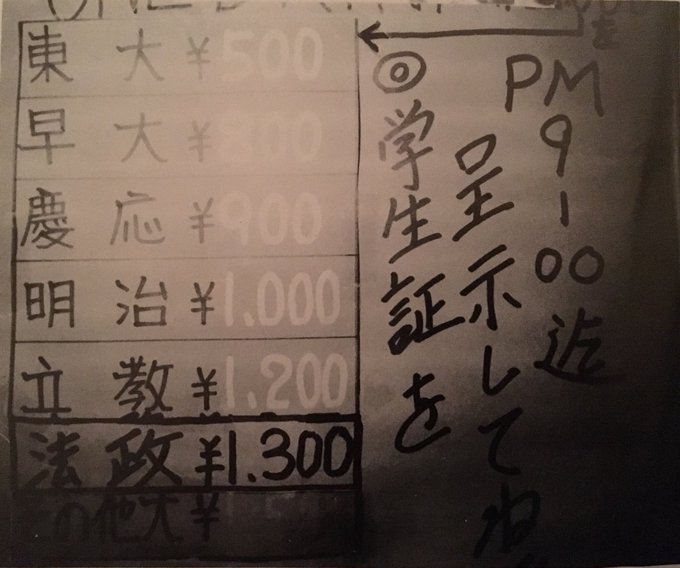 東大 ¥500
早大 ¥800
慶応 ¥900
明治 ¥1.000
立教 ¥1.200
法政 ¥1.300
その他大 ¥
PM9-00迄
◎学生証を
呈示してね